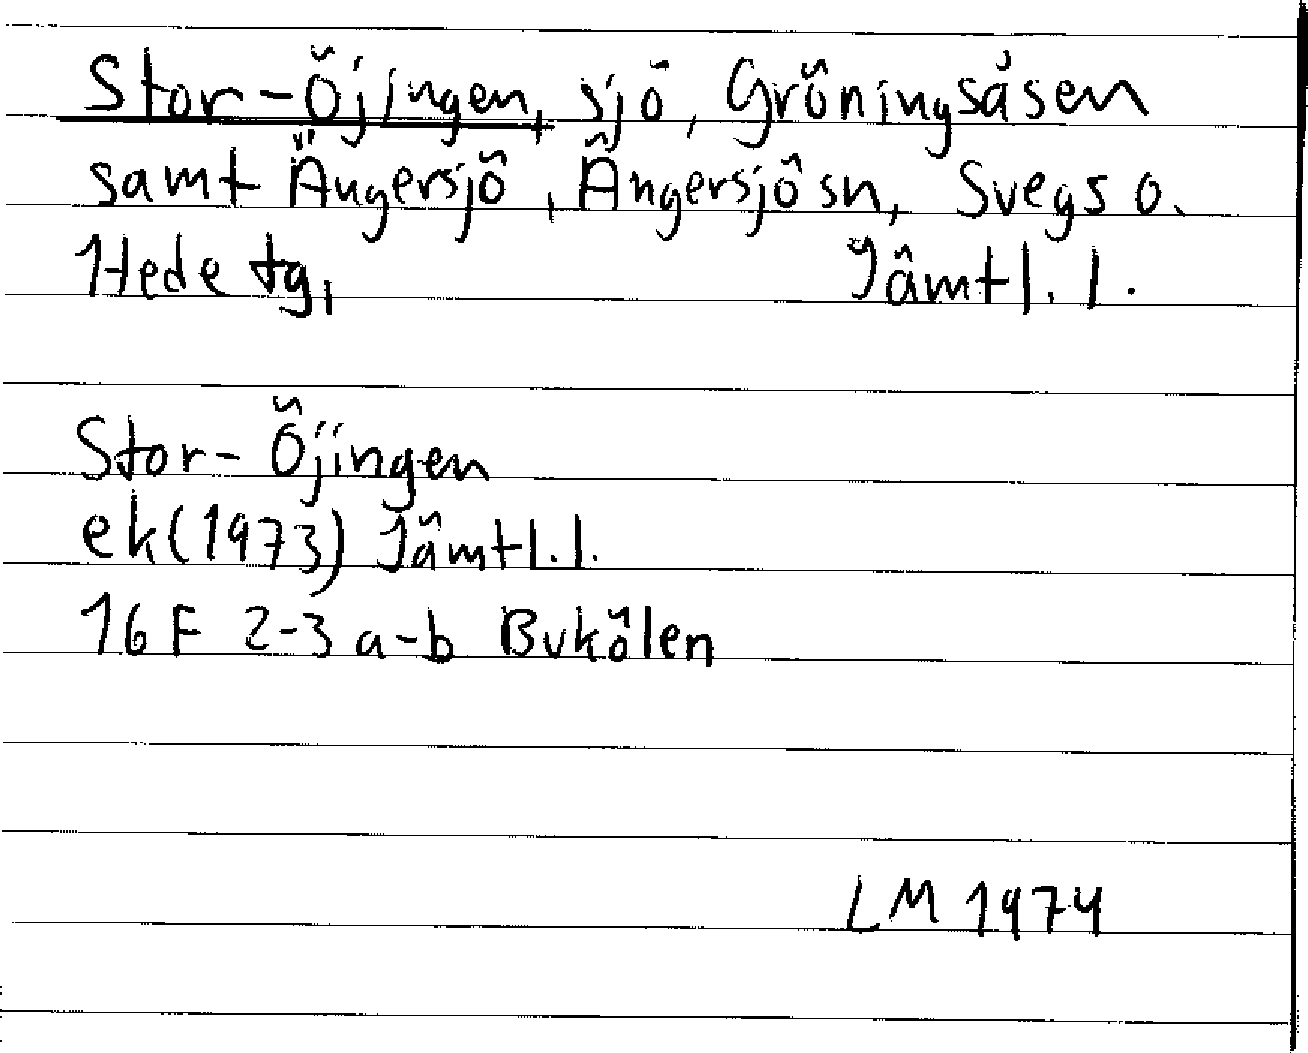 Stor-Öjingen, sjö, Gröningsåsen
samt Ängersjö, Ängersjö sn, Svegs o.
Hede tg, Jämtl. l.
Stor-Öjingen
ek (1973) Jämtl. l.
16 F 2-3 a-b Bukölen
LM 1974